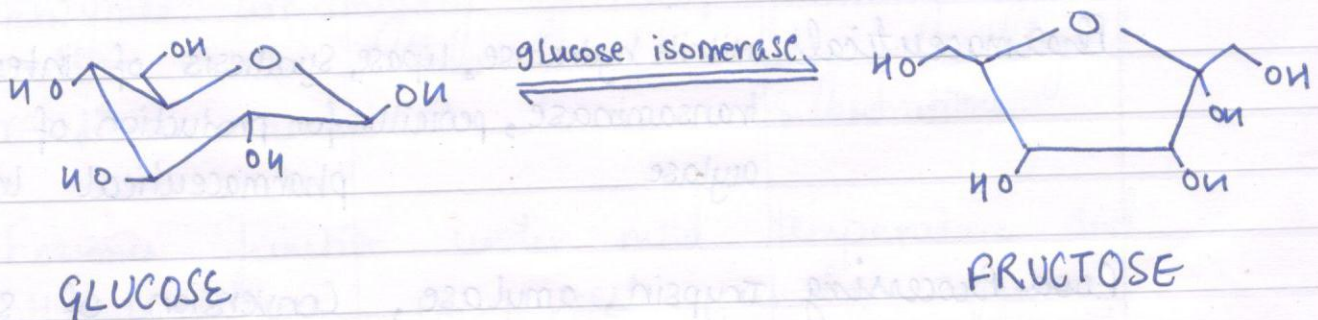 OH O HO HO OH OH
glucose isomerase
O HO OH OH HO OH
GLUCOSE
FRUCTOSE